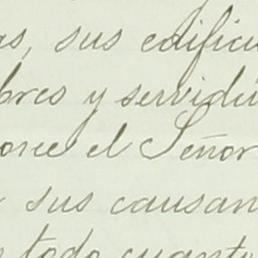 as, sus edificio
bres y servidu
oree el Señor
sus causan
todo cuanto